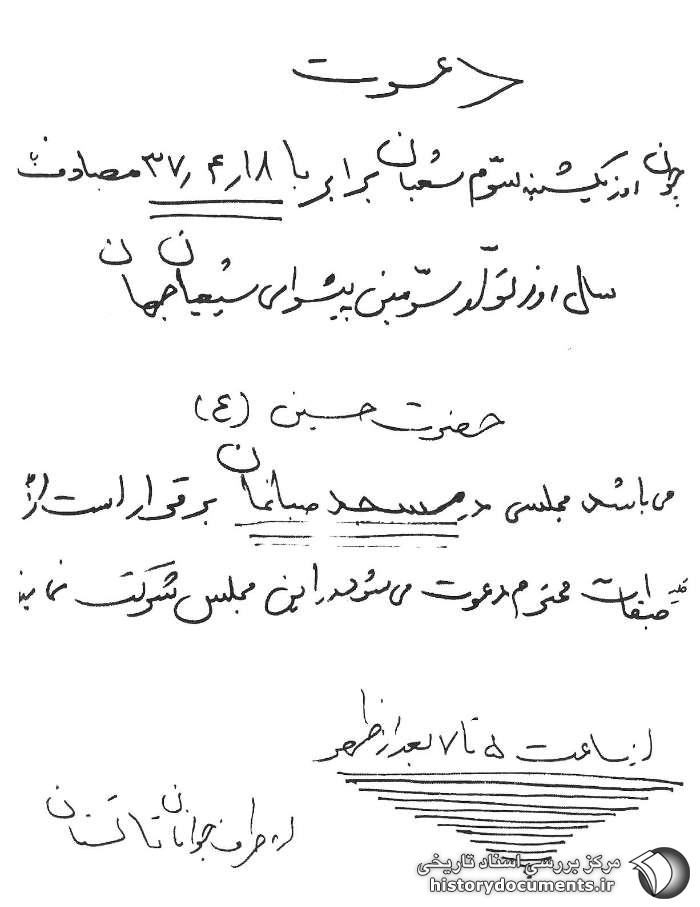 دعوت
چون روز یکشنبه سوّم شعبان برابر با ۳۷٫۴٫۱۸ مصادف با
سال روز تولّد سوّمین پیشوای شیعیان جهان
حضرت حسین (ع)
می باشد مجلسی در مسجد صباغان برقرار است از
کلیه طبقات محترم دعوت می شود در این مجلس شرکت نمایند
از ساعت ۵ تا ۷ بعد از ظهر
از طرف جوانان تاکستان
مرکز بررسی اسناد تاریخی
historydocuments.ir